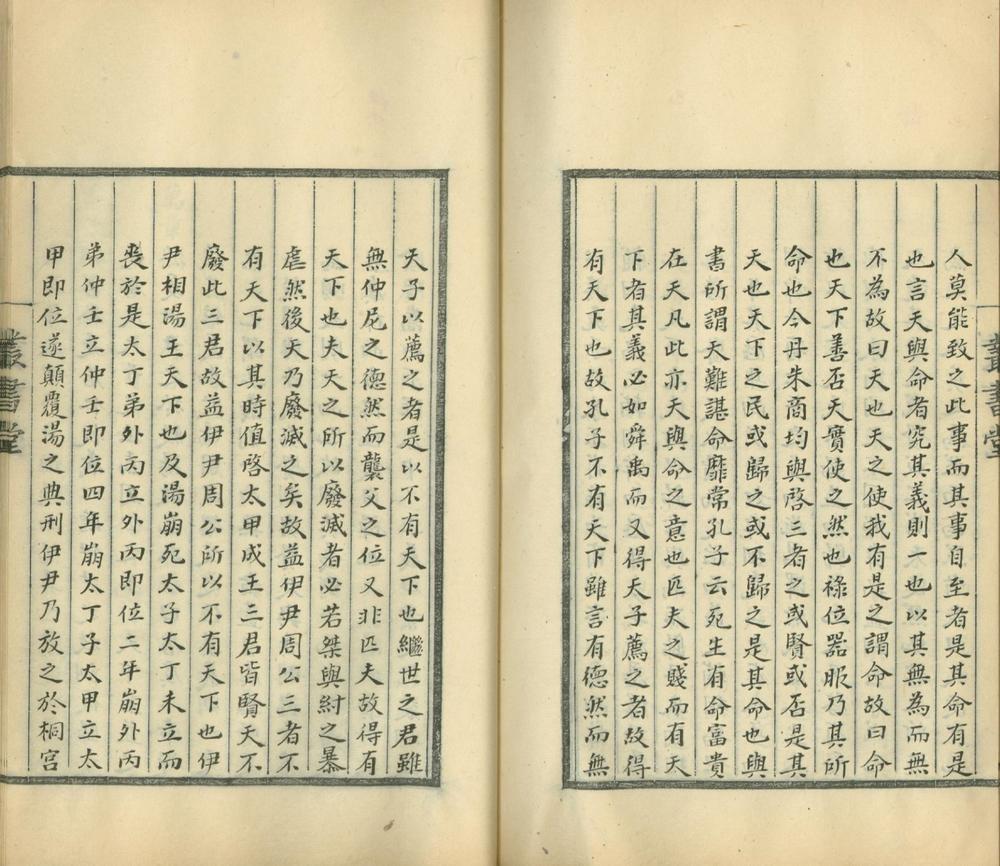 人莫能致之此事而其事自至者是其命有是
也言天與命者究其義則一也以其無為而無
不為故曰天也天之使我有是之謂命故曰命
也天下善否天實使之然也祿位器服乃其所
命也今丹朱商均與啓三者之或賢或否是其
天也天下之民或歸之或不歸之是其命也與
書所謂天難諶命靡常孔子云死生有命富貴
在天凡此亦天與命之意也匹夫之賤而有天
下者其義必如舜禹而又得天子薦之者故得
有天下也故孔子不有天下雖言有德然而無
叢書堂
天子以薦之者是以不有天下也繼世之君雖
無仲尼之德然而襲父之位又非匹夫故得有
天下也夫天之所以廢滅者必若桀與紂之暴
虐然後天乃廢滅之矣故益伊尹周公三者不
有天下以其時值啓太甲成王三君皆賢天不
廢此三君故益伊尹周公所以不有天下也伊
尹相湯王天下也及湯崩死太子太丁未立而
喪於是太丁弟外丙立外丙即位二年崩外丙
弟仲壬立仲壬即位四年崩太丁子太甲立太
甲即位遂顛覆湯之典刑伊尹乃放之於桐宮
叢書堂